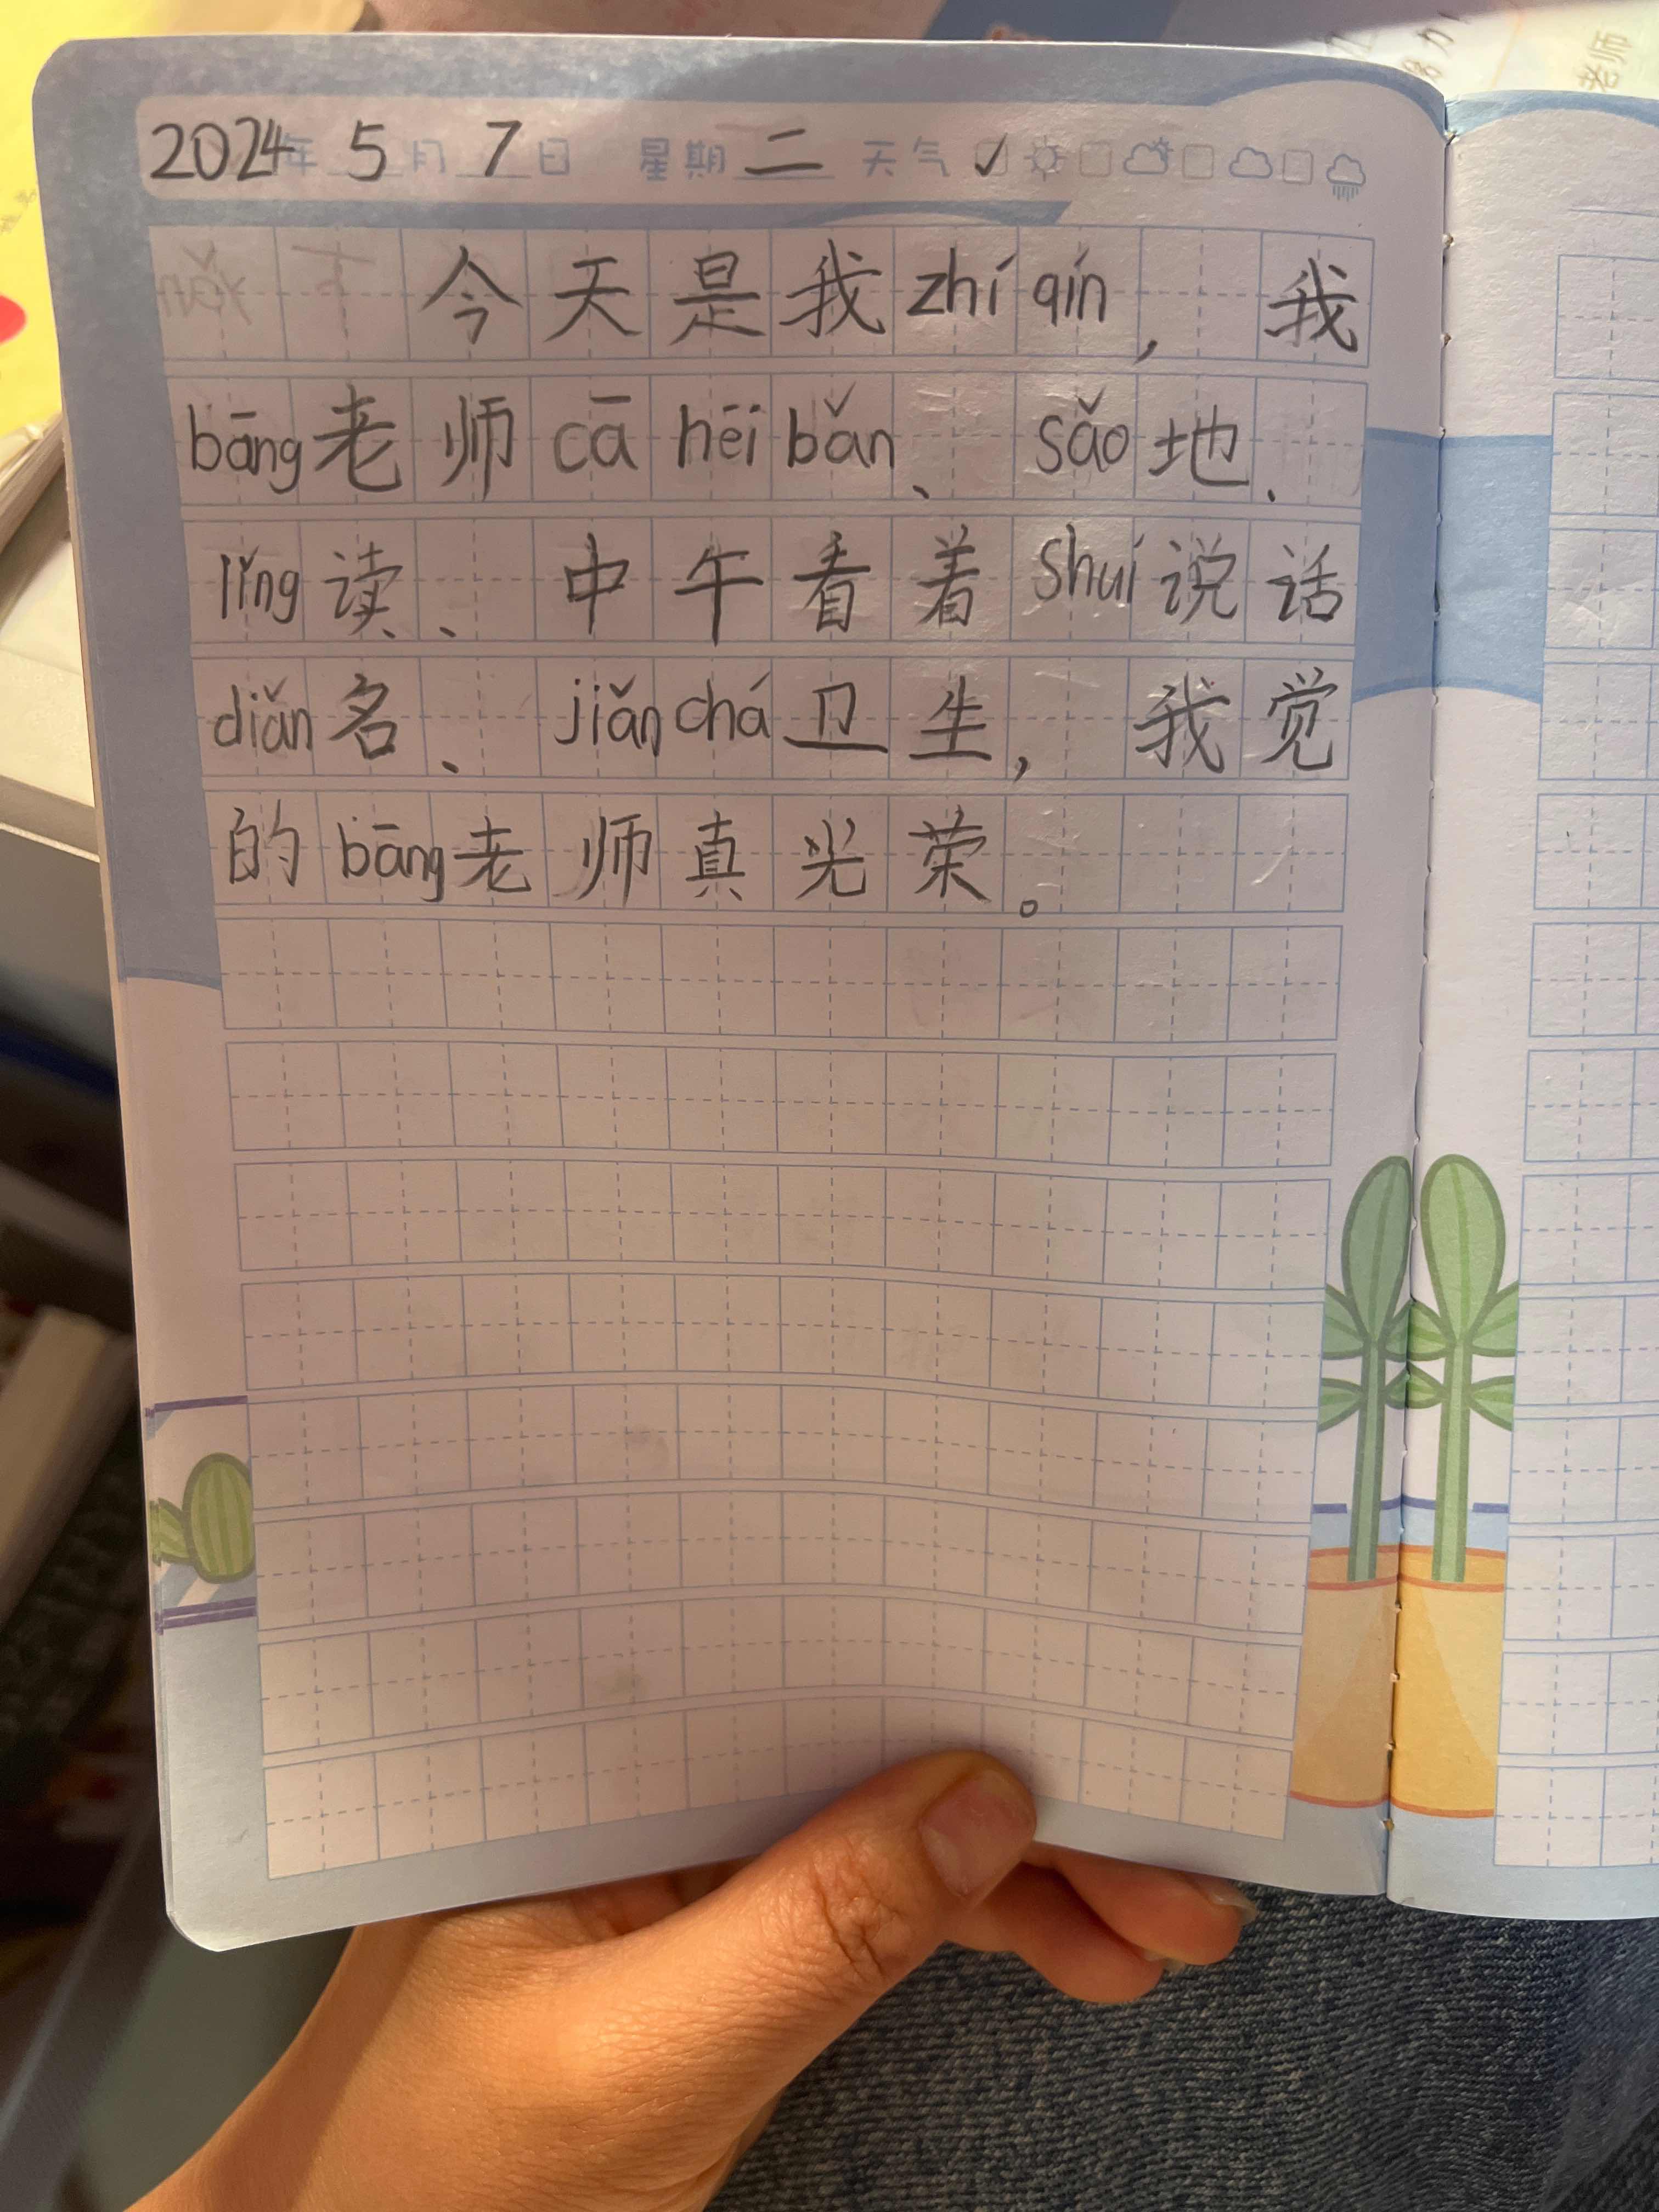 2024年 5月 7日 星期二 天气 ✓
今天是我zhí qín，我
bāng老师cā hēi bǎn、sǎo地、
lǐng读、中午看着shuí说话
diǎn名、jiǎn chá卫生，我觉
的bāng老师真光荣。
老师